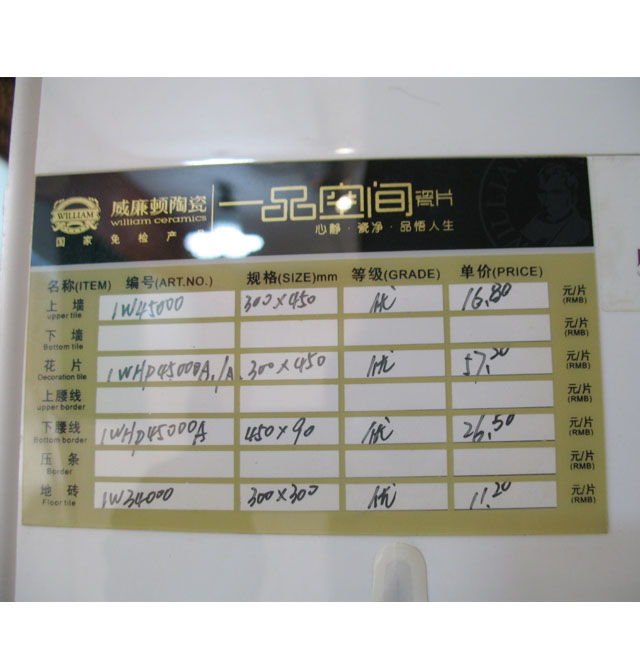 WILLIAM
威廉顿陶瓷
william ceramics
国家免检产品
一品空间 瓷片
心静·瓷净·品悟人生
名称(ITEM) 编号(ART.NO.) 规格(SIZE)mm 等级(GRADE) 单价(PRICE)
上墙 1W45000 300×450 优 16.80 元/片
upper tile (RMB)
下墙 元/片
Bottom tile (RMB)
花片 1WHP45000A1/A 300×450 优 57.20 元/片
Decoration tile (RMB)
上腰线 元/片
upper border (RMB)
下腰线 1WHP45000A 450×90 优 26.50 元/片
Bottom border (RMB)
压条 元/片
Border (RMB)
地砖 1W34000 300×300 优 11.20 元/片
Floor tile (RMB)